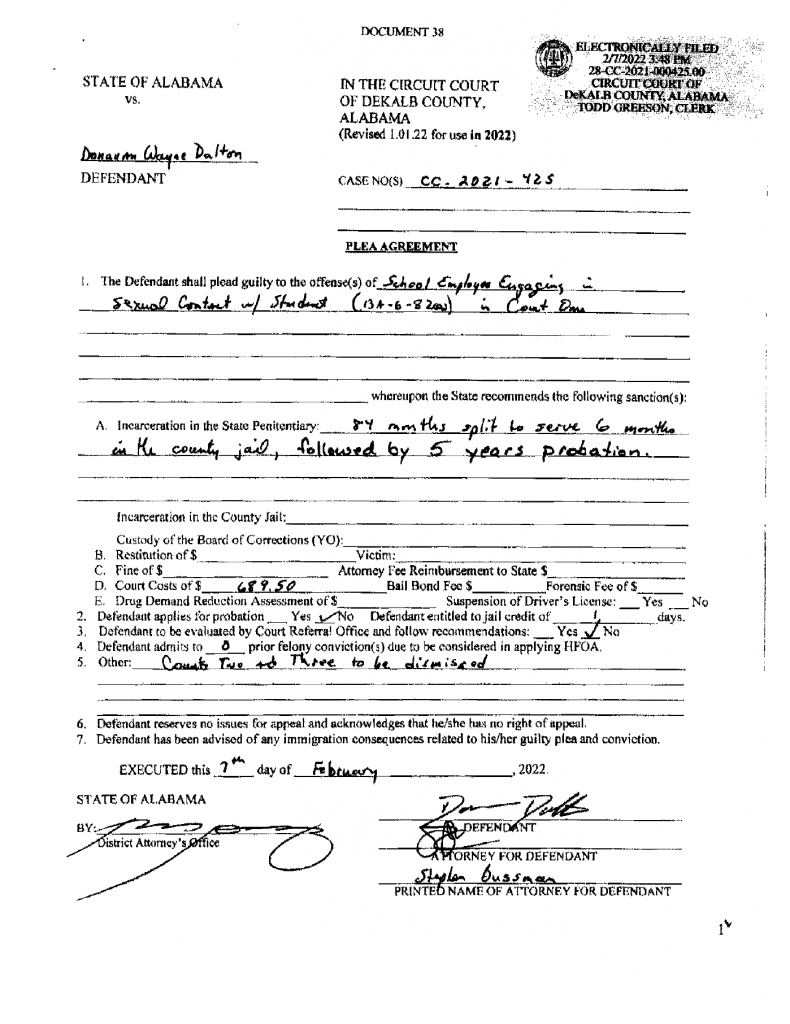 DOCUMENT 38
ELECTRONICALLY FILED
2/7/2022 3:48 PM
28-CC-2021-000425.00
CIRCUIT COURT OF
DeKALB COUNTY, ALABAMA
TODD GREESON, CLERK
STATE OF ALABAMA
vs.
Donavan Wayne Dalton
DEFENDANT
IN THE CIRCUIT COURT
OF DEKALB COUNTY,
ALABAMA
(Revised 1.01.22 for use in 2022)
CASE NO(S) CC-2021-425
PLEA AGREEMENT
1. The Defendant shall plead guilty to the offense(s) of School Employee Engaging in
Sexual Contact w/ Student (13A-6-82) in Count One
whereupon the State recommends the following sanction(s):
A. Incarceration in the State Penitentiary: 84 months split to serve 6 months
in the county jail, followed by 5 years probation.
Incarceration in the County Jail:
Custody of the Board of Corrections (YO):
B. Restitution of $ Victim:
C. Fine of $ Attorney Fee Reimbursement to State $
D. Court Costs of $ 689.50 Bail Bond Fee $ Forensic Fee of $
E. Drug Demand Reduction Assessment of $ Suspension of Driver's License: Yes No
2. Defendant applies for probation Yes ✓ No Defendant entitled to jail credit of 1 days.
3. Defendant to be evaluated by Court Referral Office and follow recommendations: Yes ✓ No
4. Defendant admits to 0 prior felony conviction(s) due to be considered in applying HFOA.
5. Other: Counts Two and Three to be dismissed
6. Defendant reserves no issues for appeal and acknowledges that he/she has no right of appeal.
7. Defendant has been advised of any immigration consequences related to his/her guilty plea and conviction.
EXECUTED this 7th day of February, 2022.
STATE OF ALABAMA
BY:
District Attorney's Office
DEFENDANT
ATTORNEY FOR DEFENDANT
Stephen Bussman
PRINTED NAME OF ATTORNEY FOR DEFENDANT
1